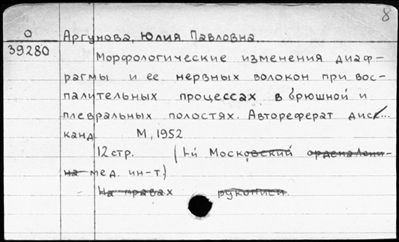 8
О
39280
Аргунова, Юлия Павловна.
Морфологические изменения диаф-
рагмы и ее нервных волокон при вос-
палительных процессах в брюшной и
плевральных полостях. Автореферат дисс...
канд. М, 1952
12 стр. (1-й Московский орденаЛени-
на мед. ин-т.)
На правах рукописи